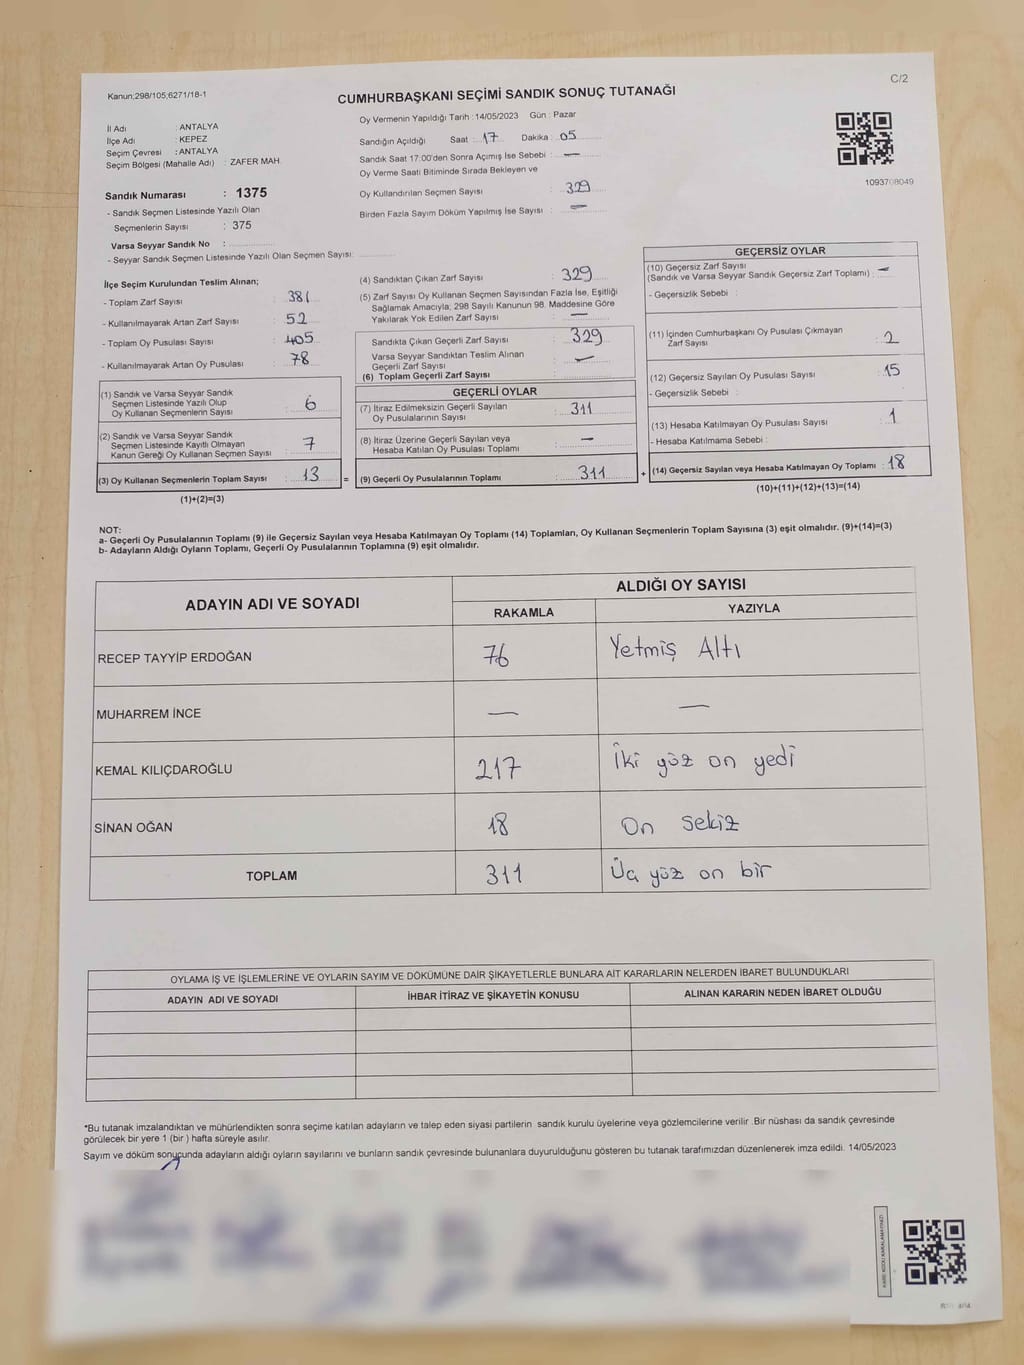 Kanun;298/105;6271/18-1
C/2
CUMHURBAŞKANI SEÇİMİ SANDIK SONUÇ TUTANAĞI
İl Adı : ANTALYA
İlçe Adı : KEPEZ
Seçim Çevresi : ANTALYA
Seçim Bölgesi (Mahalle Adı) : ZAFER MAH.
Sandık Numarası : 1375
- Sandık Seçmen Listesinde Yazılı Olan
Seçmenlerin Sayısı : 375
Varsa Seyyar Sandık No :
- Seyyar Sandık Seçmen Listesinde Yazılı Olan Seçmen Sayısı:
Oy Vermenin Yapıldığı Tarih : 14/05/2023 Gün : Pazar
Sandığın Açıldığı Saat : 17 Dakika : 05
Sandık Saat 17:00'den Sonra Açılmış İse Sebebi : —
Oy Verme Saati Bitiminde Sırada Bekleyen ve
Oy Kullandırılan Seçmen Sayısı : 329
Birden Fazla Sayım Döküm Yapılmış İse Sayısı : —
1093708049
İlçe Seçim Kurulundan Teslim Alınan;
- Toplam Zarf Sayısı : 381
- Kullanılmayarak Artan Zarf Sayısı : 52
- Toplam Oy Pusulası Sayısı : 405
- Kullanılmayarak Artan Oy Pusulası : 78
(1) Sandık ve Varsa Seyyar Sandık
Seçmen Listesinde Yazılı Olup
Oy Kullanan Seçmenlerin Sayısı : 6
(2) Sandık ve Varsa Seyyar Sandık
Seçmen Listesinde Kayıtlı Olmayan
Kanun Gereği Oy Kullanan Seçmen Sayısı : 7
(3) Oy Kullanan Seçmenlerin Toplam Sayısı : 13 =
(1)+(2)=(3)
(4) Sandıktan Çıkan Zarf Sayısı : 329
(5) Zarf Sayısı Oy Kullanan Seçmen Sayısından Fazla İse, Eşitliği
Sağlamak Amacıyla; 298 Sayılı Kanunun 98. Maddesine Göre
Yakılarak Yok Edilen Zarf Sayısı : —
Sandıkta Çıkan Geçerli Zarf Sayısı : 329
Varsa Seyyar Sandıktan Teslim Alınan
Geçerli Zarf Sayısı : —
(6) Toplam Geçerli Zarf Sayısı :
GEÇERLİ OYLAR
(7) İtiraz Edilmeksizin Geçerli Sayılan
Oy Pusulalarının Sayısı : 311
(8) İtiraz Üzerine Geçerli Sayılan veya
Hesaba Katılan Oy Pusulası Toplamı : —
(9) Geçerli Oy Pusulalarının Toplamı : 311 +
GEÇERSİZ OYLAR
(10) Geçersiz Zarf Sayısı
(Sandık ve Varsa Seyyar Sandık Geçersiz Zarf Toplamı) : —
- Geçersizlik Sebebi :
(11) İçinden Cumhurbaşkanı Oy Pusulası Çıkmayan
Zarf Sayısı : 2
(12) Geçersiz Sayılan Oy Pusulası Sayısı : 15
- Geçersizlik Sebebi :
(13) Hesaba Katılmayan Oy Pusulası Sayısı : 1
- Hesaba Katılmama Sebebi :
(14) Geçersiz Sayılan veya Hesaba Katılmayan Oy Toplamı : 18
(10)+(11)+(12)+(13)=(14)
NOT:
a- Geçerli Oy Pusulalarının Toplamı (9) ile Geçersiz Sayılan veya Hesaba Katılmayan Oy Toplamı (14) Toplamları, Oy Kullanan Seçmenlerin Toplam Sayısına (3) eşit olmalıdır. (9)+(14)=(3)
b- Adayların Aldığı Oyların Toplamı, Geçerli Oy Pusulalarının Toplamına (9) eşit olmalıdır.
ADAYIN ADI VE SOYADI
ALDIĞI OY SAYISI
RAKAMLA YAZIYLA
RECEP TAYYİP ERDOĞAN 76 Yetmiş Altı
MUHARREM İNCE — —
KEMAL KILIÇDAROĞLU 217 İki yüz on yedi
SİNAN OĞAN 18 On sekiz
TOPLAM 311 Üç yüz on bir
OYLAMA İŞ VE İŞLEMLERİNE VE OYLARIN SAYIM VE DÖKÜMÜNE DAİR ŞİKAYETLERLE BUNLARA AİT KARARLARIN NELERDEN İBARET BULUNDUKLARI
ADAYIN ADI VE SOYADI İHBAR İTİRAZ VE ŞİKAYETİN KONUSU ALINAN KARARIN NEDEN İBARET OLDUĞU
*Bu tutanak imzalandıktan ve mühürlendikten sonra seçime katılan adayların ve talep eden siyasi partilerin sandık kurulu üyelerine veya gözlemcilerine verilir. Bir nüshası da sandık çevresinde
görülecek bir yere 1 (bir ) hafta süreyle asılır.
Sayım ve döküm sonucunda adayların aldığı oyların sayılarını ve bunların sandık çevresinde bulunanlara duyurulduğunu gösteren bu tutanak tarafımızdan düzenlenerek imza edildi. 14/05/2023